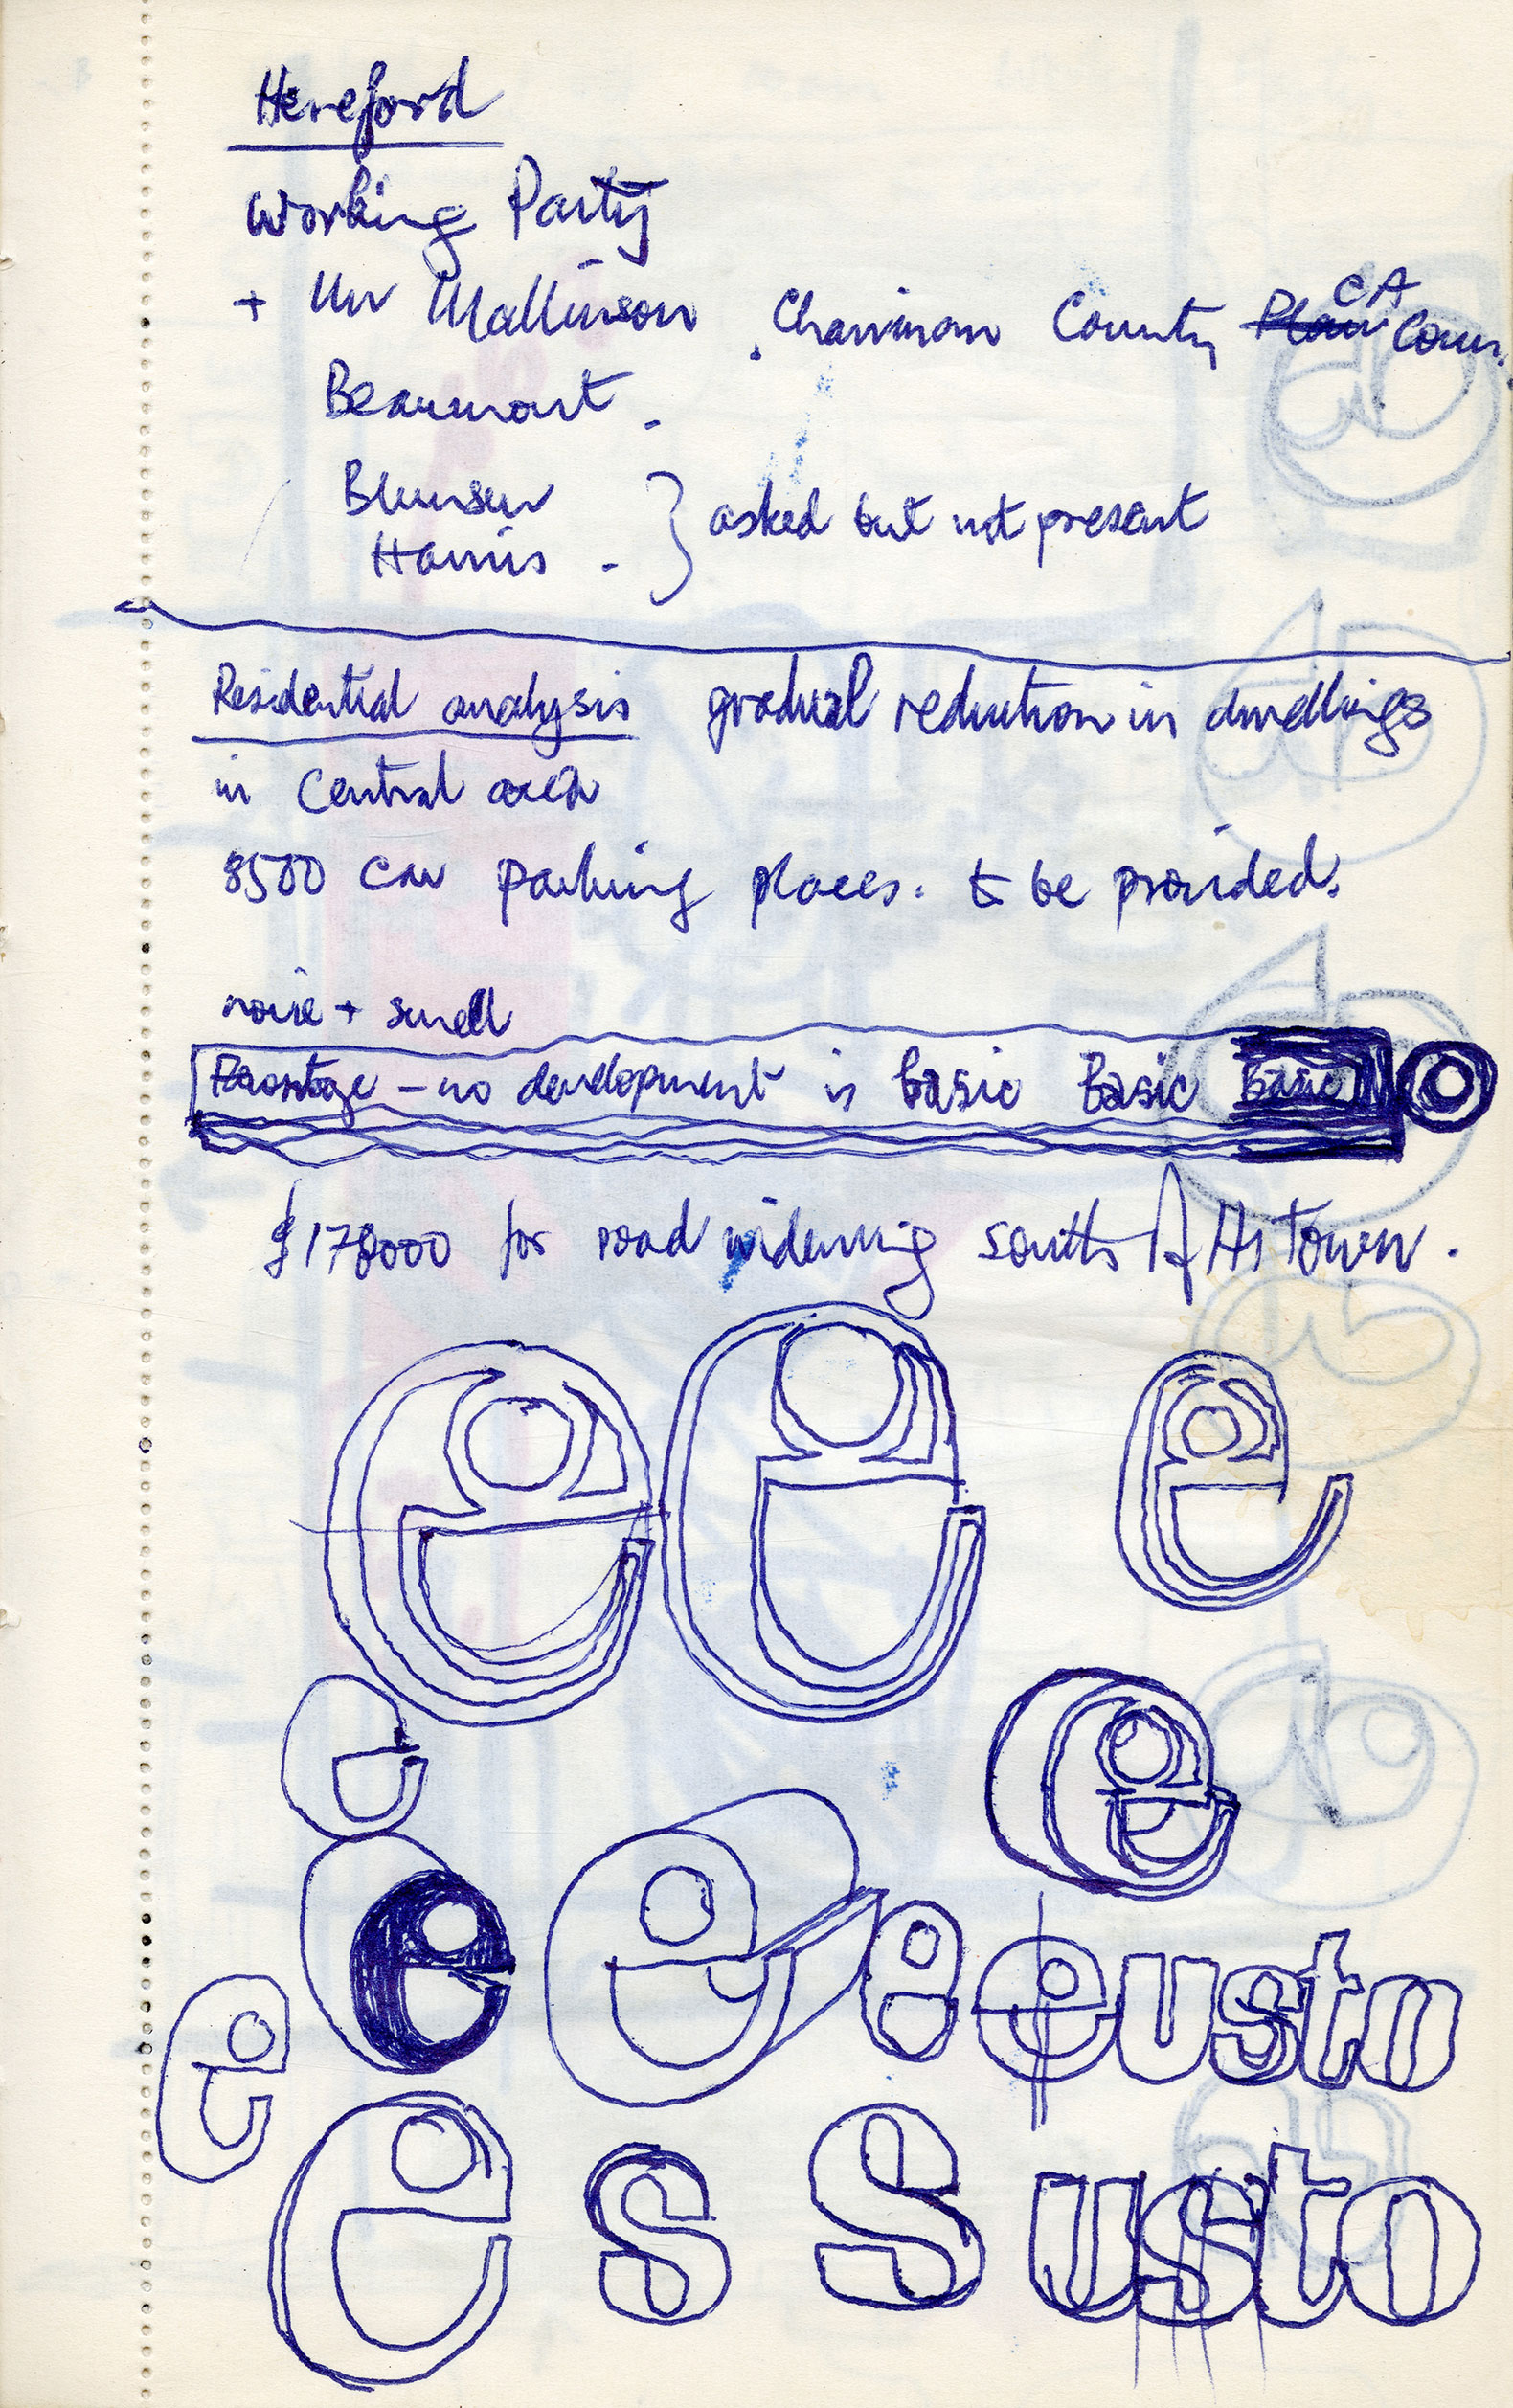 Hereford
Working Party
+ Mr Mallinson . Chairman County Plan CA Coun.
Beaumont .
Blunsen
Harris . } asked but not present
Residential analysis gradual reduction in dwellings
in Central area
8500 car parking places. to be provided.
noise + smell
Frontage – no development is basic Basic Basic
for road widening south of town.
e e e
e e
e e e eusto
e
e s S usto